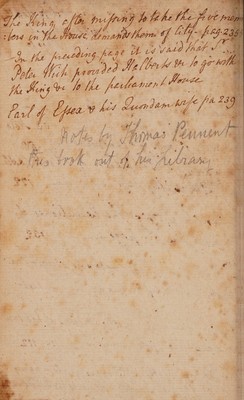 The King after missing to take the five mem-
bers in the House demands them of City - pag. 239
In the preceding page it is said that Sr
Peter Wich provided Halberts &c to go with
the King &c to the parliament House
Earl of Essex & his Quondam wife pa 239
Notes by Thomas Pennent
This book out of his library